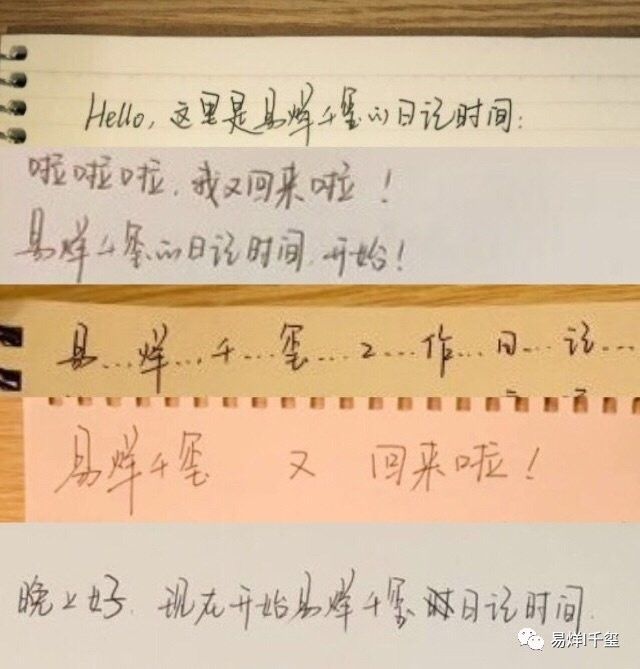 Hello, 这里是易烊千玺的日记时间:
啦啦啦,我又回来啦!
易烊千玺的日记时间,开始!
易...烊...千...玺...工...作...日...记...
易烊千玺 又 回来啦!
晚上好,现在开始易烊千玺日记时间.
易烊I千玺